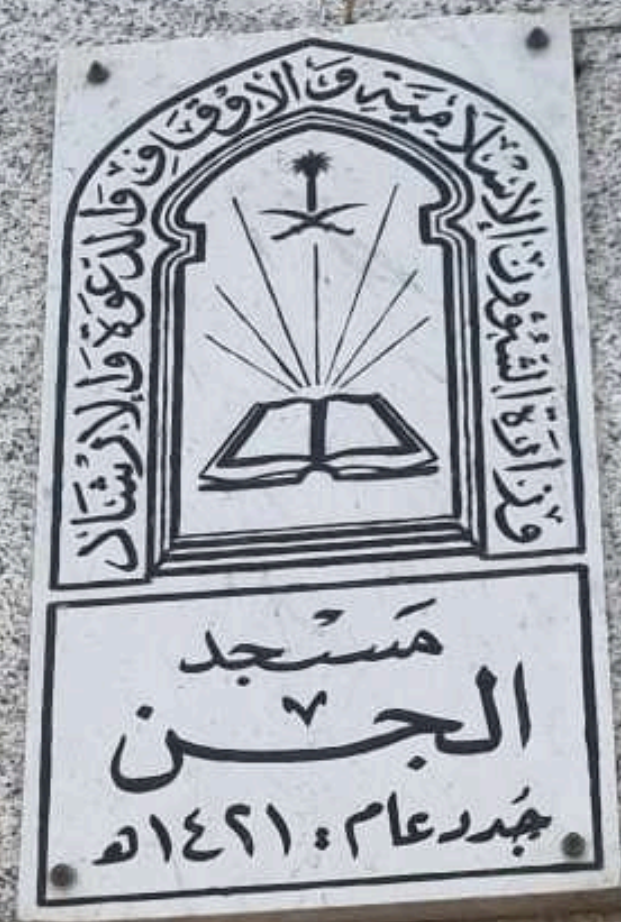 وَزَارَة الشُّؤُونِ الإِسْلَامِيَّةِ وَالأَوْقَافِ وَالدَّعْوَةِ وَالإِرْشَادِ
مَسْجد
الجن
جُدد عام : ١٤٢١هـ